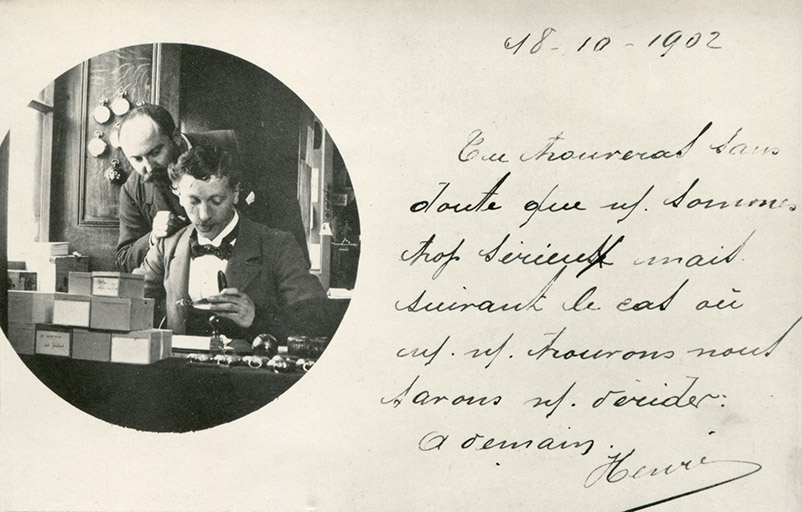 18-10-1902
Tu trouveras sans
doute que n/. sommes
trop sérieux mais
suivant le cas où
n/. n/. trouvons nous
savons n/. dérider.
A demain.
Henri